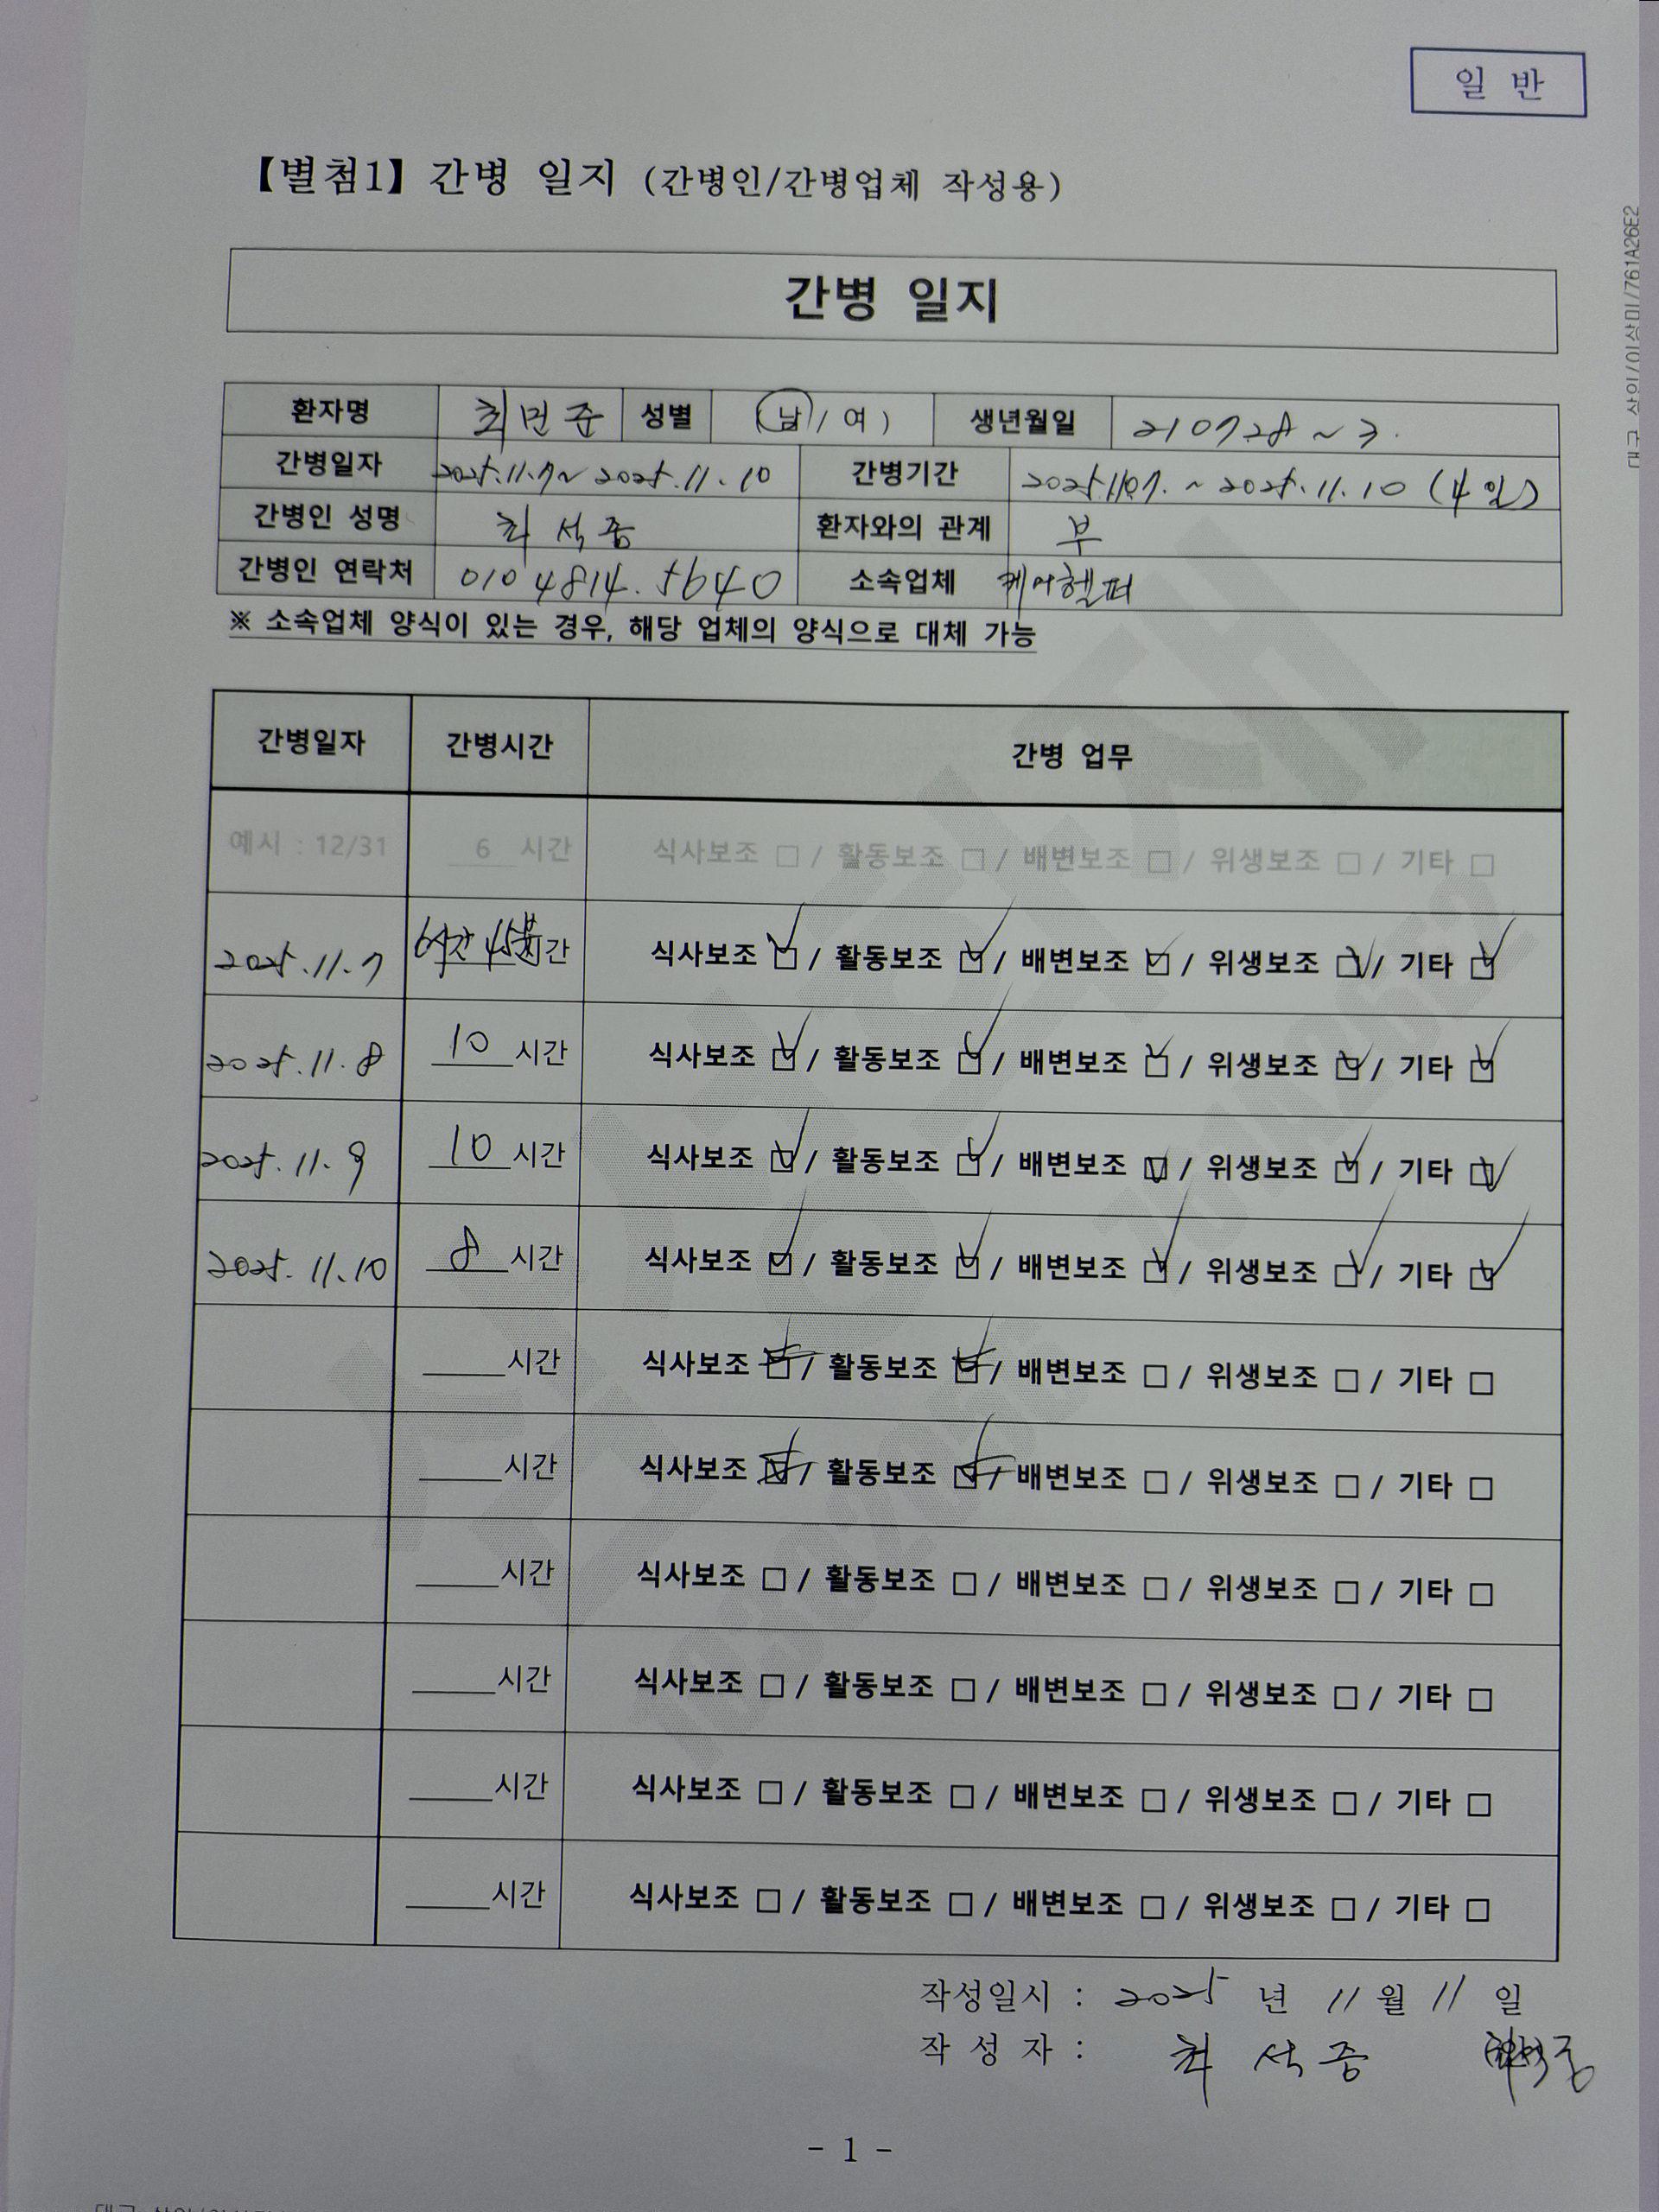 일 반
【별첨1】 간병 일지 (간병인/간병업체 작성용)
간병 일지
환자명 최민준 성별 (남/ 여) 생년월일 210728 ~ 3.
간병일자 2025.11.7~ 2025.11.10 간병기간 2025.11.07. ~ 2025.11.10 (4일)
간병인 성명 최석중 환자와의 관계 부
간병인 연락처 010 4814. 5640 소속업체 케어헬퍼
※ 소속업체 양식이 있는 경우, 해당 업체의 양식으로 대체 가능
간병일자 간병시간 간병 업무
예시 : 12/31 6 시간 식사보조 □ / 활동보조 □ / 배변보조 □ / 위생보조 □ / 기타 □
2025.11.7 6시간 45분 시간 식사보조 ☑ / 활동보조 ☑ / 배변보조 ☑ / 위생보조 ☑ / 기타 ☑
2025.11.8 10 시간 식사보조 ☑ / 활동보조 ☑ / 배변보조 ☑ / 위생보조 ☑ / 기타 ☑
2025.11.9 10 시간 식사보조 ☑ / 활동보조 ☑ / 배변보조 ☑ / 위생보조 ☑ / 기타 ☑
2025.11.10 8 시간 식사보조 ☑ / 활동보조 ☑ / 배변보조 ☑ / 위생보조 ☑ / 기타 ☑
시간 식사보조 ☑ / 활동보조 ☑ / 배변보조 □ / 위생보조 □ / 기타 □
시간 식사보조 ☑ / 활동보조 ☑ / 배변보조 □ / 위생보조 □ / 기타 □
시간 식사보조 □ / 활동보조 □ / 배변보조 □ / 위생보조 □ / 기타 □
시간 식사보조 □ / 활동보조 □ / 배변보조 □ / 위생보조 □ / 기타 □
시간 식사보조 □ / 활동보조 □ / 배변보조 □ / 위생보조 □ / 기타 □
시간 식사보조 □ / 활동보조 □ / 배변보조 □ / 위생보조 □ / 기타 □
작성일시 : 2025 년 11 월 11 일
작 성 자 : 최석중
- 1 -
대구 상인/이상미/761A26E2
삼성화재